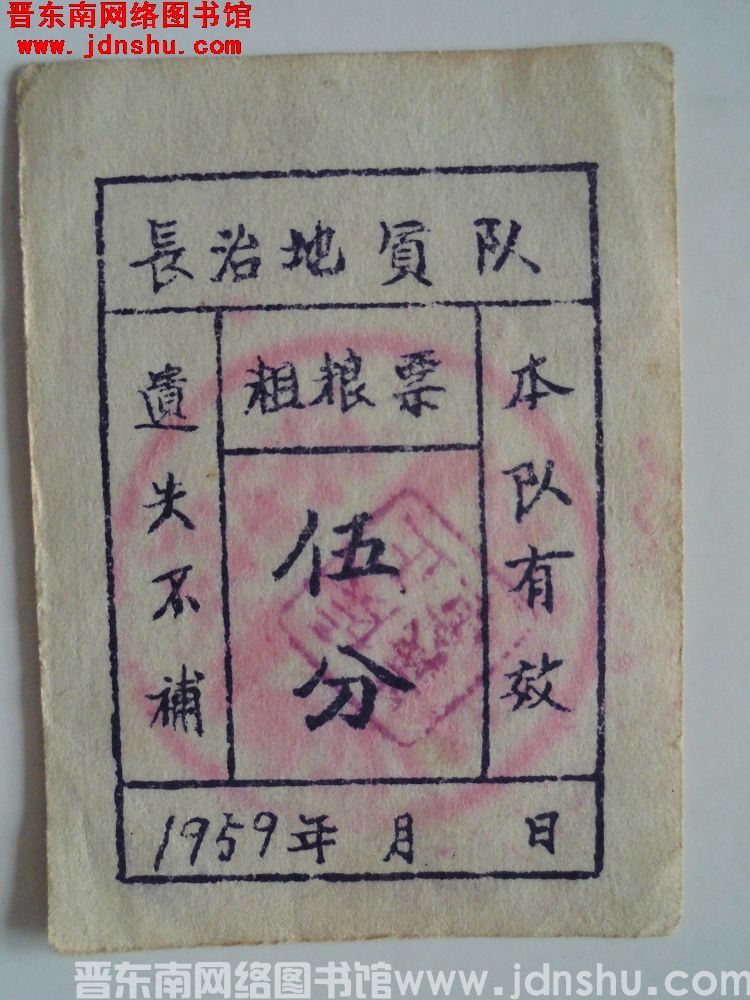 晋东南网络图书馆
www.jdnshu.com
長治地質队
粗粮票
伍分
本队有效
遺失不補
1959年 月 日
晋东南网络图书馆www.jdnshu.com